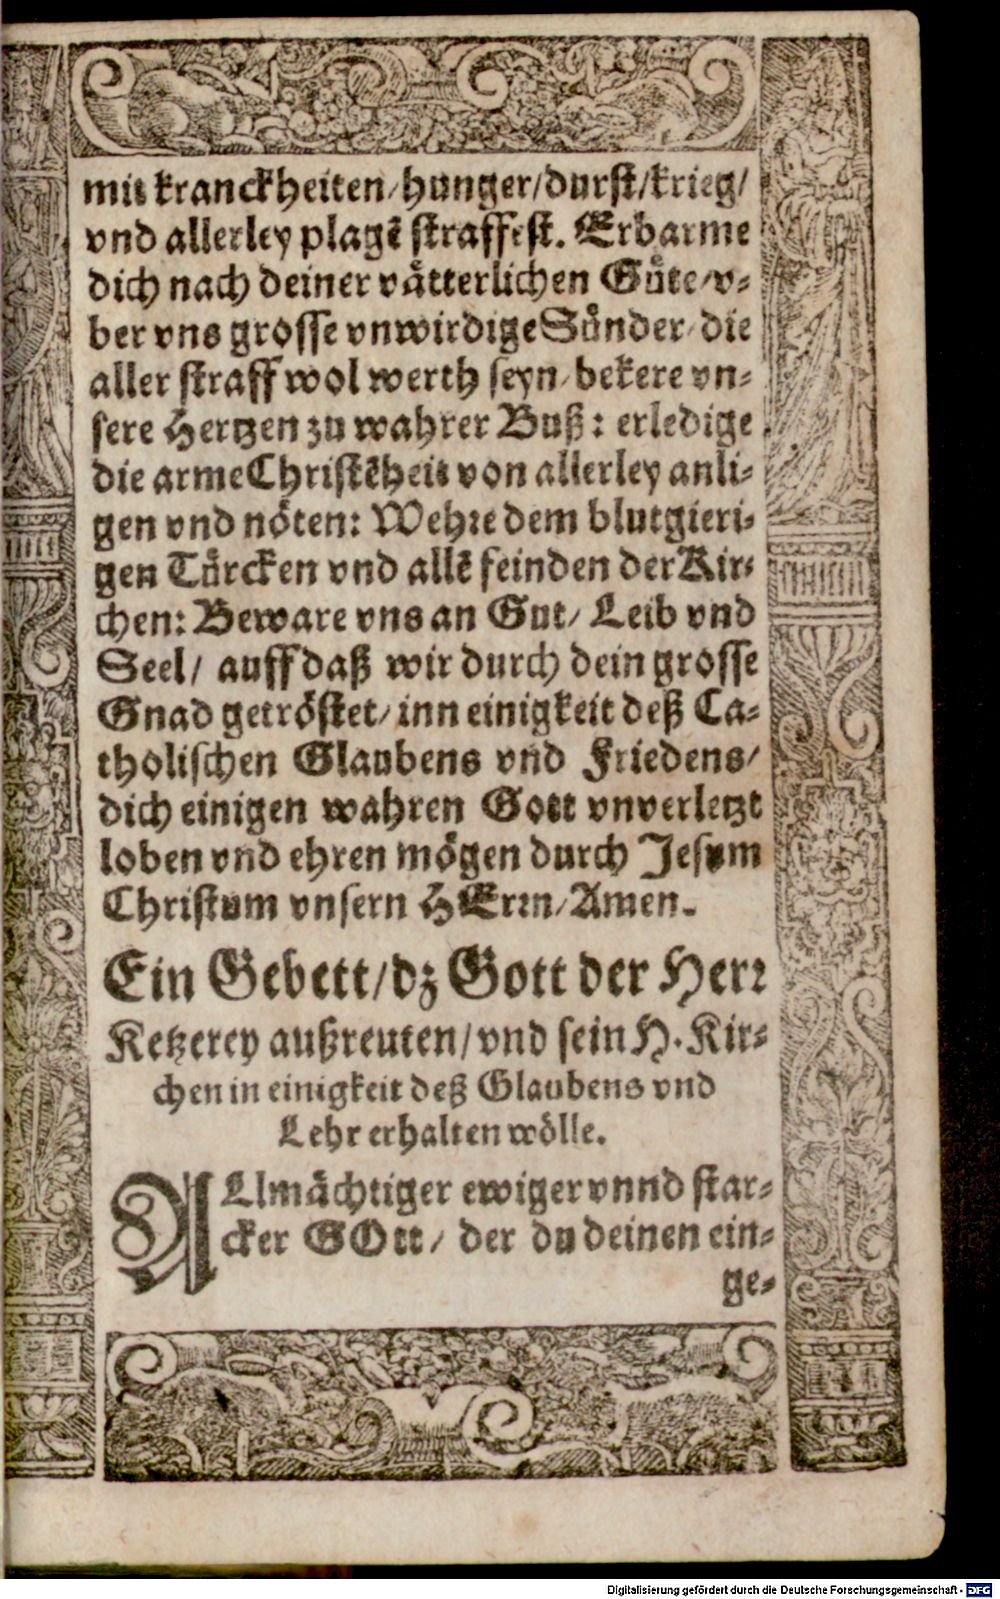 mit kranckheiten/hunger/durst/krieg/
vnd allerley plagẽ straffest. Erbarme
dich nach deiner vätterlichen Güte/v-
ber vns grosse vnwirdige Sünder/die
aller straff wol werth seyn/bekere vn-
sere Hertzen zu wahrer Buß: erledige
die arme Christẽheit von allerley anli-
gen vnd nöten: Wehre dem blutgieri-
gen Türcken vnd allẽ feinden der Kir-
chen: Beware vns an Gut/ Leib vnd
Seel/ auff daß wir durch dein grosse
Gnad getröstet/inn einigkeit deß Ca-
tholischen Glaubens vnd Friedens/
dich einigen wahren Gott vnverletzt
loben vnd ehren mögen durch Jesum
Christum vnsern HErrn/Amen.
Ein Gebett/dz Gott der Herr
Ketzerey außreuten/vnd sein H. Kir-
chen in einigkeit deß Glaubens vnd
Lehr erhalten wölle.
ALlmächtiger ewiger vnnd star-
cker GOtt/ der du deinen ein-
ge-
Digitalisierung gefördert durch die Deutsche Forschungsgemeinschaft - DFG